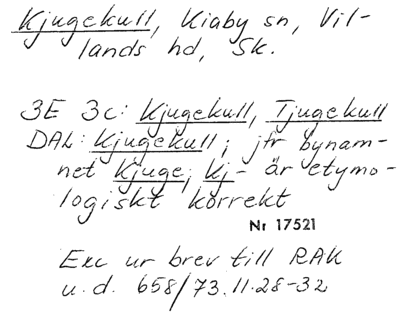 Kjugekull, Kiaby sn, Vil-
lands hd, Sk.
3E 3c: Kjugekull, Tjugekull
DAL: Kjugekull; jfr bynam-
net Kjuge; Kj- är etymo-
logiskt korrekt
Nr 17521
Exc ur brev till RAK
u.d. 658/73.11.28-32